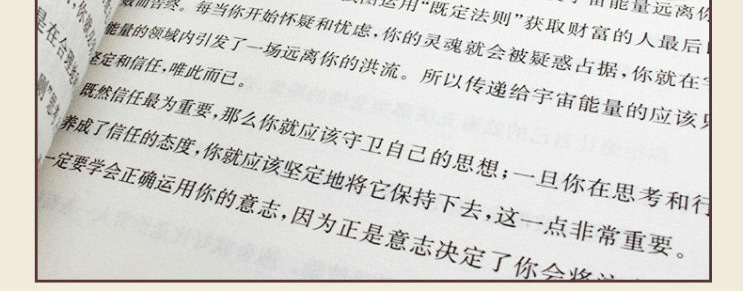 运用“既定法则”获取财富的人最后
每当你开始怀疑和忧虑,你的灵魂就会被疑惑占据,你就在宇
能量的领域内引发了一场远离你的洪流。所以传递给宇宙能量的应该
坚定和信任,唯此而已。
既然信任最为重要,那么你就应该守卫自己的思想;一旦你在思考和行
养成了信任的态度,你就应该坚定地将它保持下去,这一点非常重要。
一定要学会正确运用你的意志,因为正是意志决定了你会将